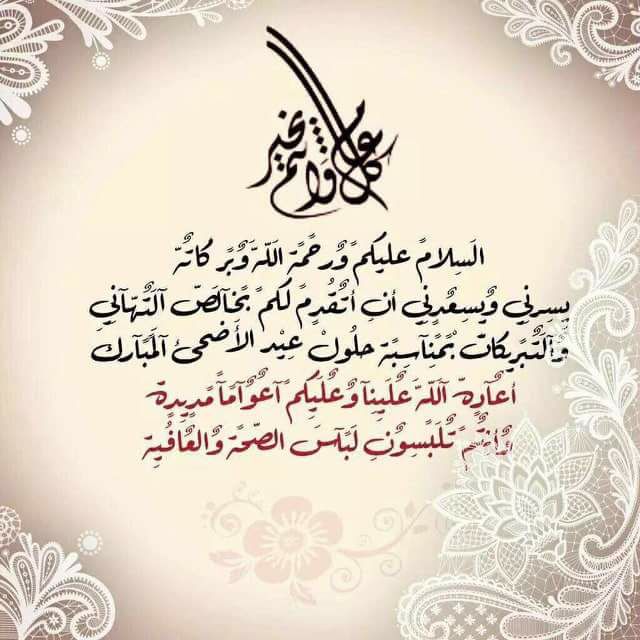 كل عام وأنتم بخير
السلام عليكم ورحمة الله وبركاته
يسرني ويسعدني أن أتقدم لكم بخالص آلتهآني
وآلتبريكات بمناسبة حلول عيد الأضحى آلمبآرك
أعآده آلله علينآ وعليكم آعوآمآ مديدة
وأنتم تلبسون لبآس الصحة والعافية